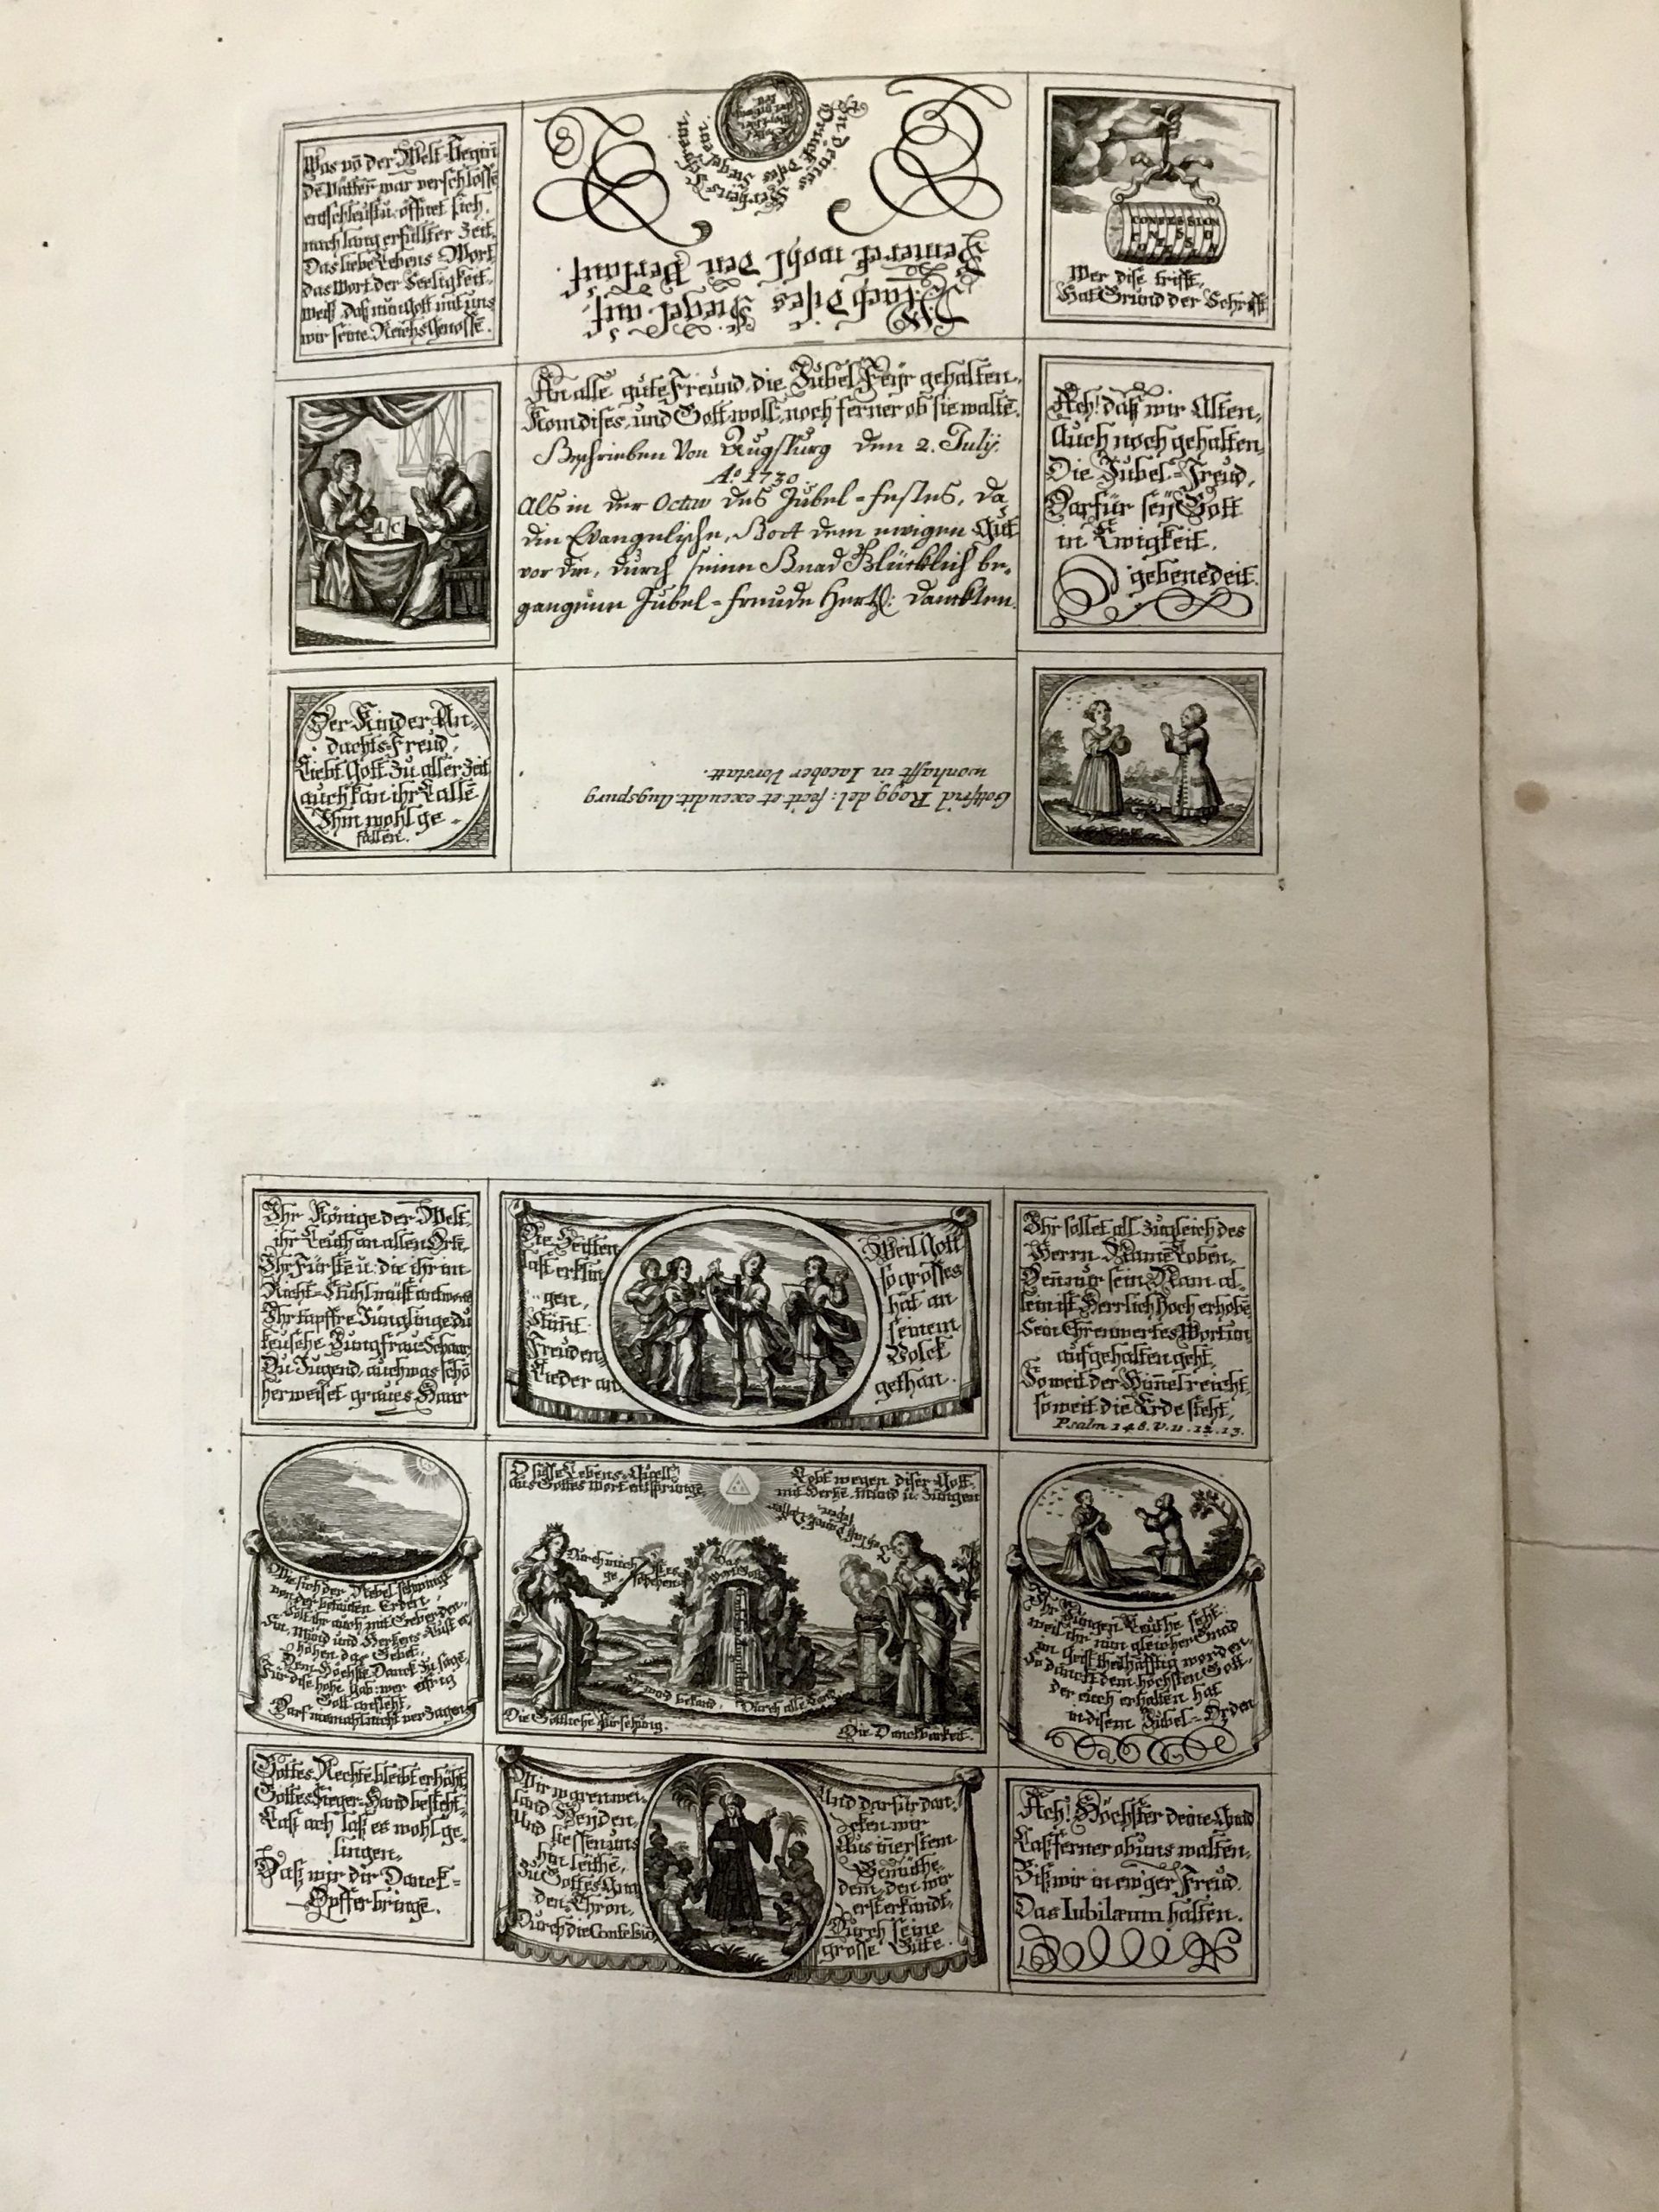 Was võ der Welt-Begiñ
dẽ Vätter war verschlossẽ
entschleüst u: öffnet sich,
nach lang erfüllter Zeit.
Das liebe Lebens Wort
das Wort der Seeligkeit.
weist, daß nun Gott mit uns
wir seine Reichs Genossẽ.
Mach dises Siegel auf
Bemerck wohl den Verlauf.
Wer dise trifft,
Hat Grund der Schrifft
CONFESSION
An alle gute Freund, die Jubel Feÿr gehalten,
Kom dises, und Gott woll, noch ferner ob sie waltẽ.
Beschrieben Von Augspurg den 2. Julÿ.
Aº. 1730.
Als in der Octav des Jubel-Festes, da
die Evangelische, Gott dem ewigen Gut
vor die, durch seine Gnad Glücklich be,
gangene Jubel-Freude Hertzl: danckten.
A C
Ach! daß wir Alten,
Auch noch gehalten,
Die Jubel-Freud,
Darfür seÿ Gott
in Ewigkeit,
gebenedeit.
Der Kinder An-
dachts-Freud,
Liebt Gott zu aller Zeit
auch kan ihr Lallẽ
Ihm wohl ge-
fallen.
Gottfrid Rogg del: fecit et excudit. Augspurg
wonhafft in Jacober Vorstatt.
Ihr Könige der Welt,
ihr Leuth an allen Ortẽ,
Ihr Fürstẽ u: die ihr im
Richt-Stuhl müst antworten
Ihr tapffre Jünglinge du
keusche Jungfrau Schaar,
Du Jugend, auch was schõ
her weiset graues Haar
Die Seitten
last erklin
gen,
Stim̃t
Freuden,
Lieder an,
Weil Gott
so grosses
hat an
seinem
Volck
gethan.
Ihr sollet all zugleich des
Herrn Name Loben,
Deñ nur sein Nam al,
lein ist Herrlich hoch erhobẽ
Sein Ehrenwertes Wort un
aufgehalten geht,
So weit der Him̃el reicht,
so weit die Erde steht,
Psalm 148. v. 11. 12. 13.
Wie sich der Nebel schwingt
von der bethauten Erden,
Solt ihr auch mit Geberden,
Sin̄, Mund und Hertzens-Lust er,
höhen das Gebet,
Dem Höchstẽ Danck zu sagẽ,
Für dise hohe Gab: wer eifrig
Gott anfleht,
Darf niemahl nicht verzagen
O süsse Lebens-Quell,
aus Gottes Wort entsprungẽ,
Lobt wegen diser Gott
mit Hertze, Mund u: Zungen
Durch mich
ist es
ge,
schehen
Das
Wort Gottes
Sie wird bekand, Durch alle Land
Die Göttliche Fürsehung.
Die Danckbarkeit.
Ihr Jungen Leuthe seht:
weil ihr nun gleicher Gnad
im Geist theilhafftig worden
So danckt dem höchsten Gott,
der euch erhalten hat
in disem Jubel-Orden
Gottes Rechte bleibt erhöht
Gottes Sieger-Hand besteht
Laß ach laß es wohl ge,
lingen,
Daß wir dir Danck-
Opffer bringẽ.
Wir waren wei,
land Heÿden,
Und liessen uns
hin leithẽ,
Zu Gottes Gna
den-Thron,
Durch die Confessiõ,
Und darfür dan,
cken wir
Aus iñerstem
Gemüthe,
dem, den wir
erst erkandt,
Durch seine
grosse Güte.
Ach! Höchster deine Gnad
Laß ferner ob uns walten,
Biß wir in ewiger Freud,
Das Jubilæum halten.